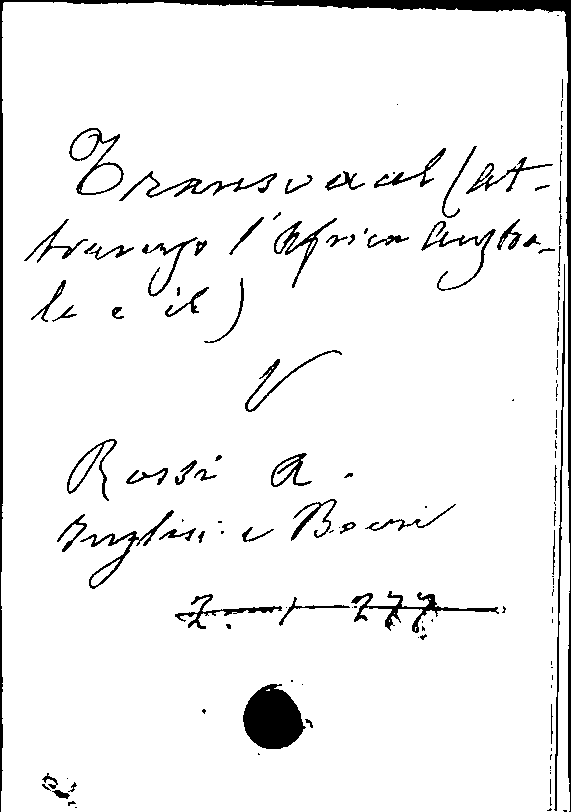 Transvaal (at-
traverso l'Africa Austra-
le e il)
V
Rossi A.
Inglesi e Boeri
Z. 1 277